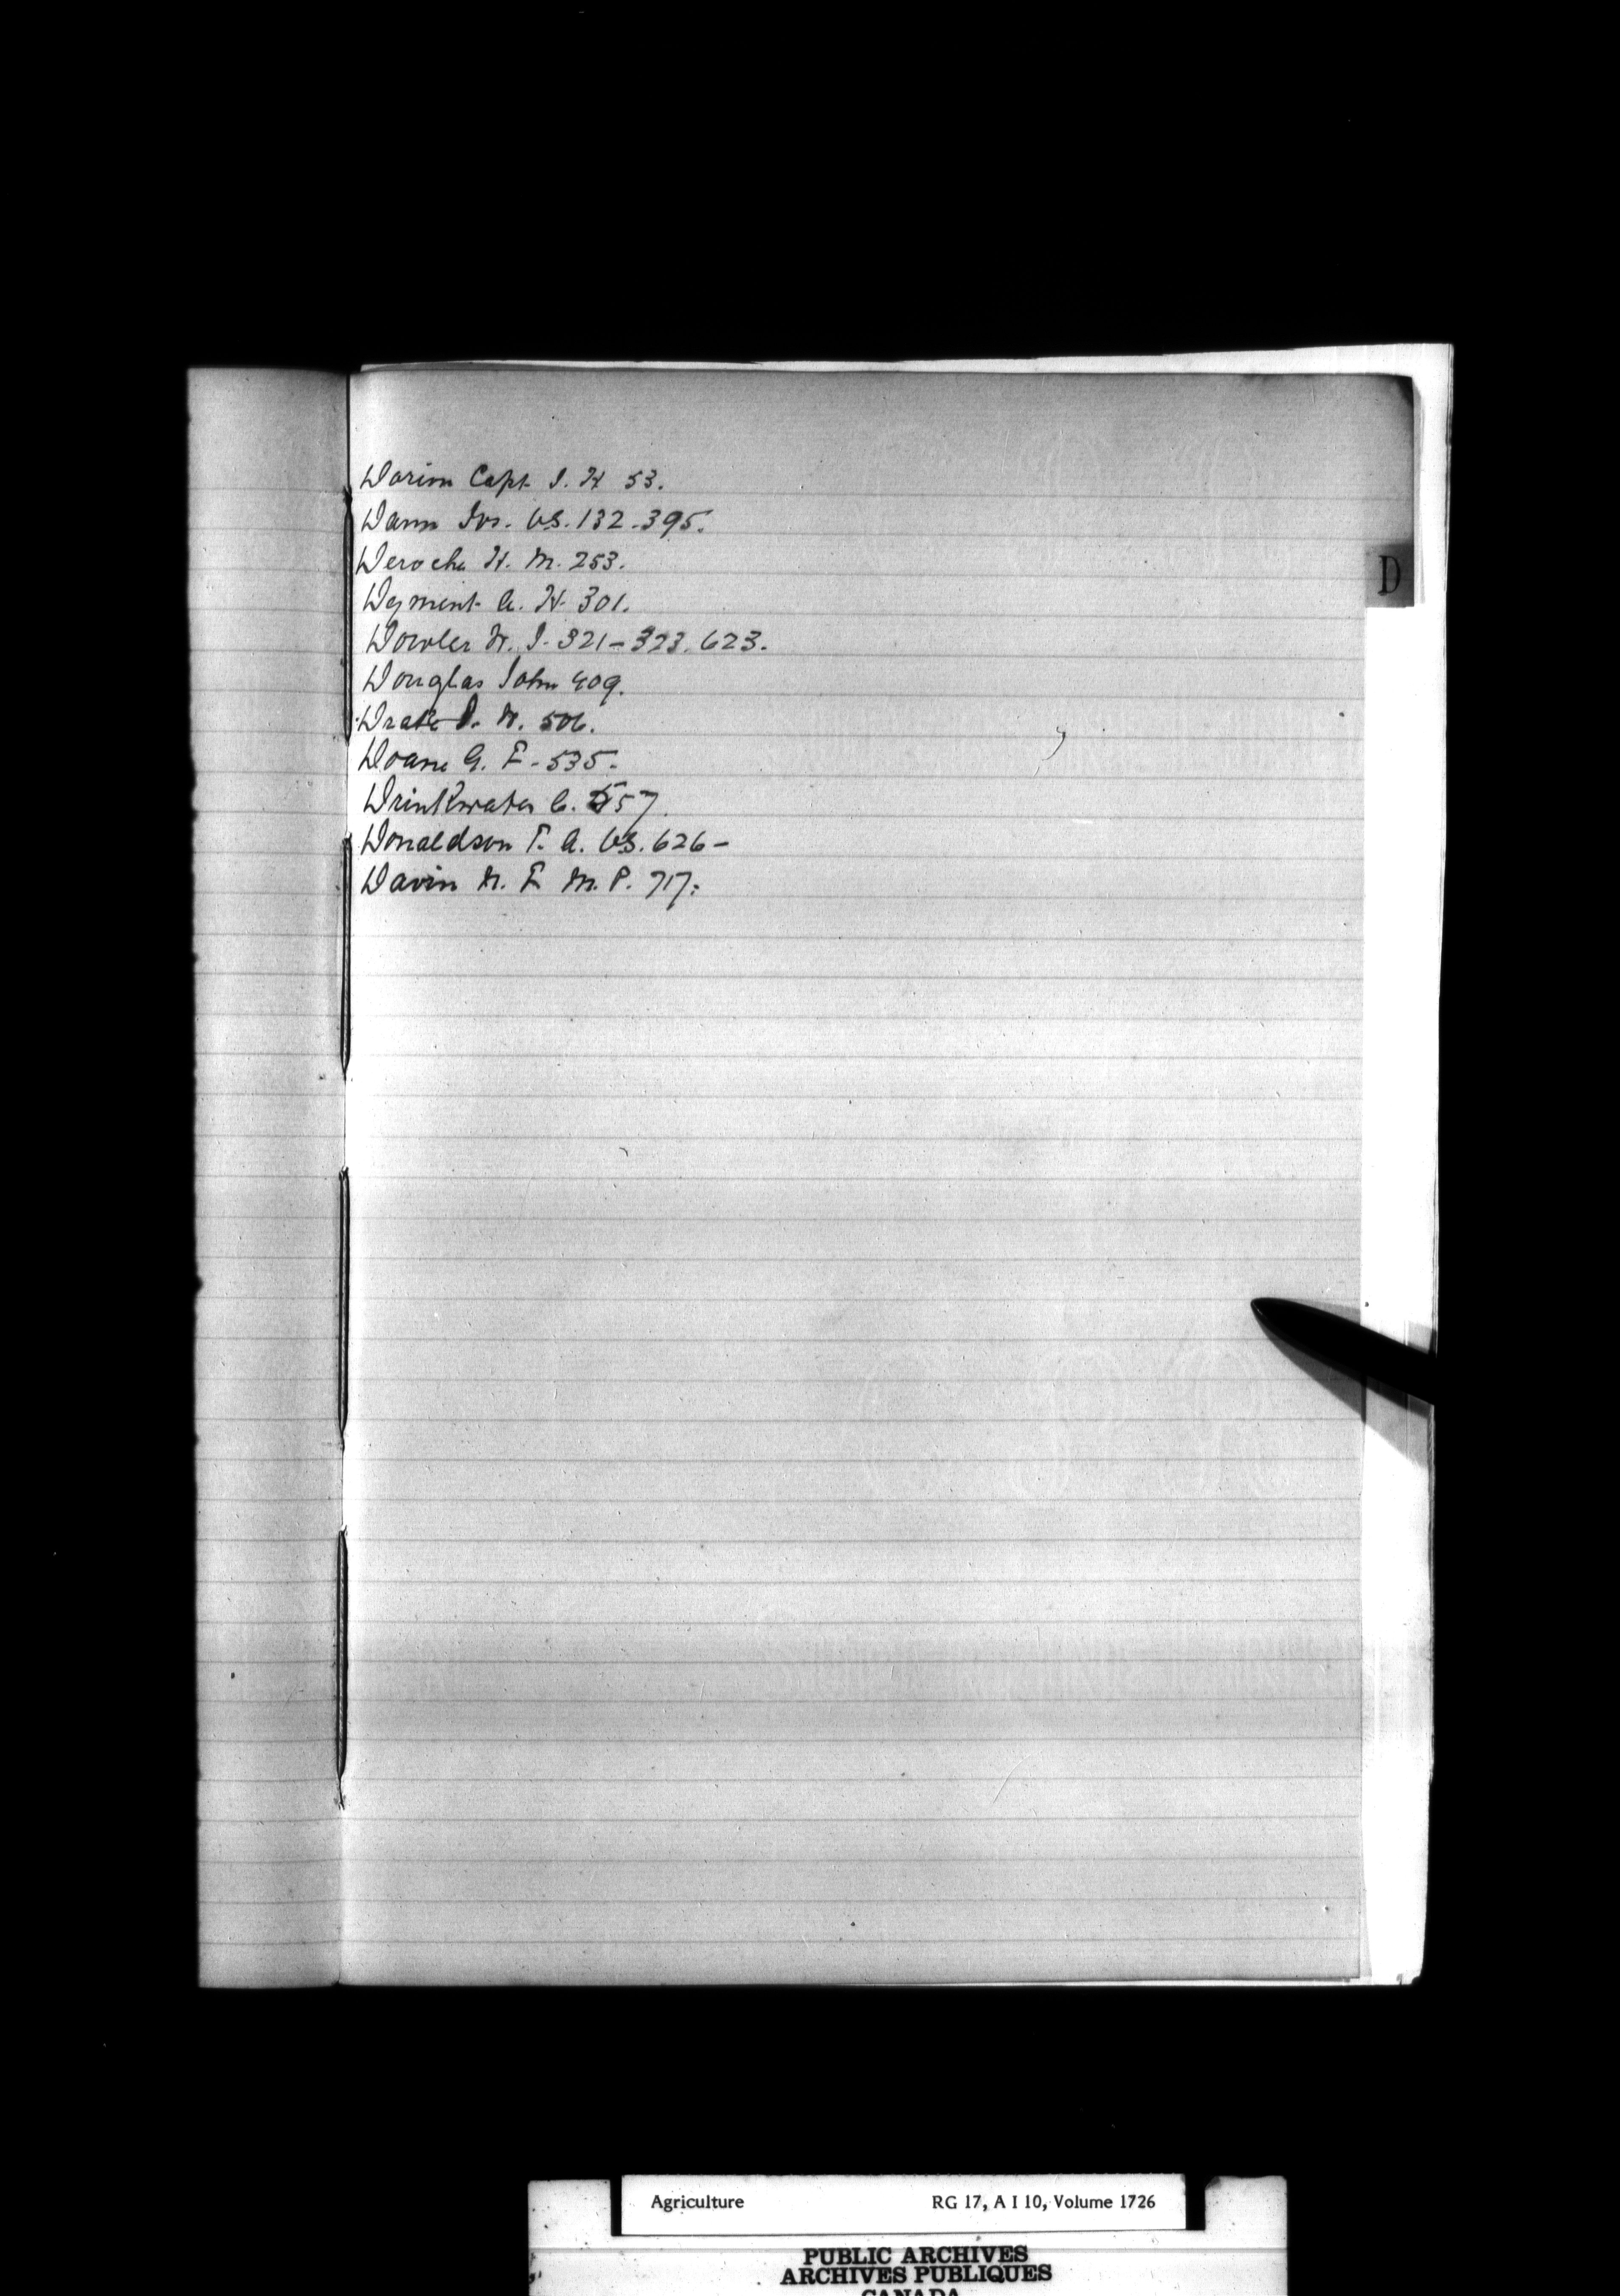 Dorion Capt J. H 53.
Dann Jos. VS. 132-395.
Deroche H. M. 253.
Dyment A. H. 301.
Dowler W. J. 321-323. 623.
Douglas John 409.
Drake W. 506.
Doane G. F. 535.
Drinkwater C. 557.
Donaldson F. A. VS. 626-
Davin N. F. M. P. 717.
D
Agriculture RG 17, A I 10, Volume 1726
PUBLIC ARCHIVES
ARCHIVES PUBLIQUES
CANADA